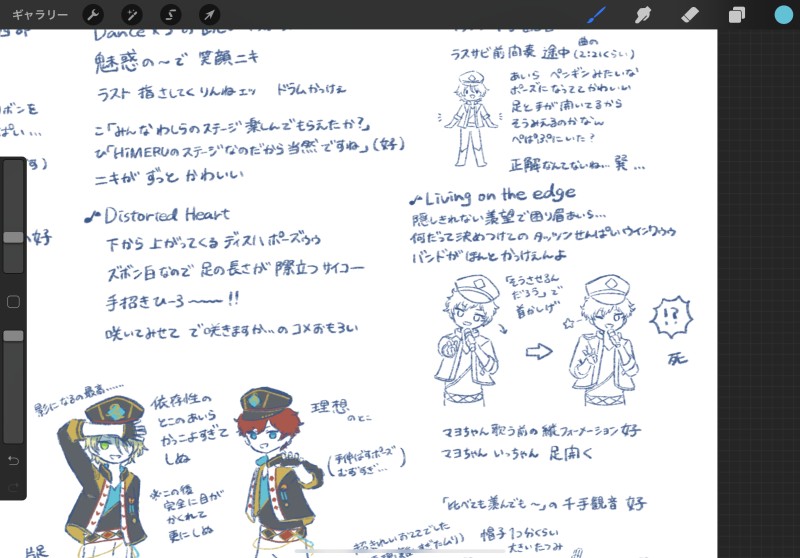 ギャラリー
魅惑の〜で 笑顔ニキ
ラスト 指さしてくりんねェッ ドラムかっけぇ
こ「みんなわしらのステージ楽しんでもらえたか?」
ひ「HiMERUのステージなのだから当然ですね」(好)
ニキが ずっと かわいい
♪Distorted Heart
下から 上がってくる ディスハ ポーズゥゥ
ズボン白なので 足の長さが 際立つ サイコー
手招きひーろ〜〜〜!!
咲いてみせて で咲きますか…の コメおもろい
影になるの最高……
依存性の
とこのあいら
かっこよすぎて
しぬ
※この後
完全に目が
かくれて
更にしぬ
理想
のとこ
(手伸ばすポーズ
むずすぎ…)
ラスサビ前間奏 途中 (2:21くらい)
曲の
あいら ペンギンみたいな
ポーズになっててかわいい
足と手が開いてるから
そうみえるのかなぁ
ぺぱぷにいた?
正解なんてないね… 発…
♪Living on the edge
隠しきれない羨望で困り眉あいら…
何だって決めつけての タッツンせんぱいウインクゥゥ
バンドがほんと かっけえんよ
「そうさせるん
だろう」で
首かしげ
!?
死
マヨちゃん歌う前の縦フォーメーション好
マヨちゃん いっちゃん 足開く
「比べても羨んでも〜」の 千手観音 好
帽子1つ分くらい
大きいたつみ